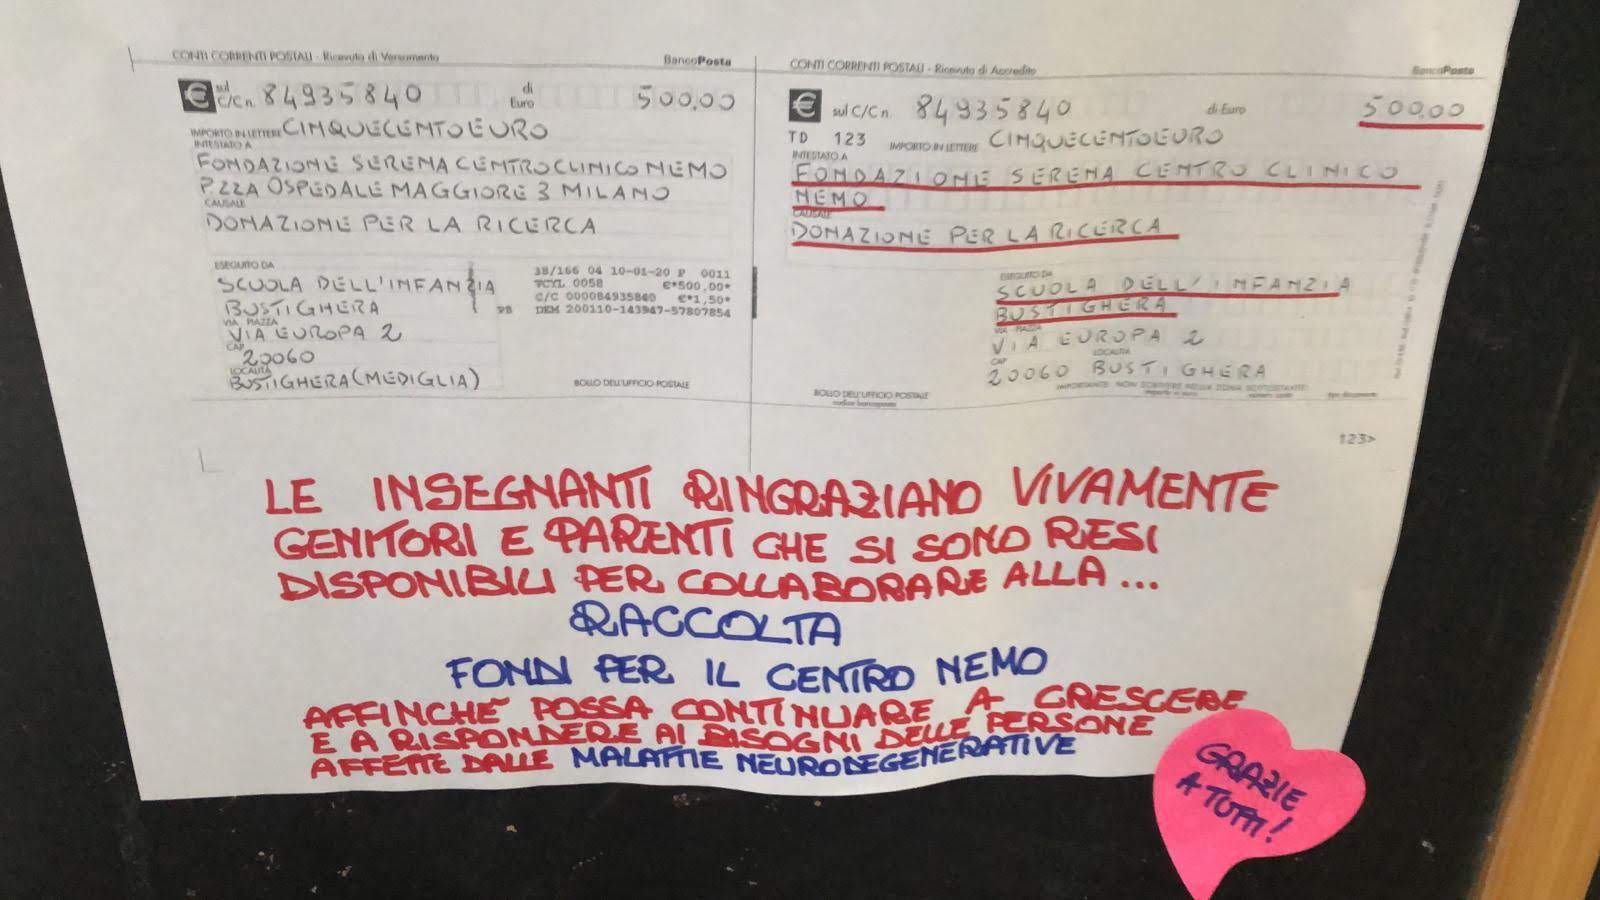 CONTI CORRENTI POSTALI - Ricevuta di Versamento BancoPosta
€ sul C/C n. 84935840 di Euro 500,00
IMPORTO IN LETTERE CINQUECENTOEURO
INTESTATO A
FONDAZIONE SERENA CENTRO CLINICO NEMO
P.ZZA OSPEDALE MAGGIORE 3 MILANO
CAUSALE
DONAZIONE PER LA RICERCA
ESEGUITO DA
SCUOLA DELL'INFANZIA
BUSTIGHERA
VIA PIAZZA
VIA EUROPA 2
CAP
20060
LOCALITÀ
BUSTIGHERA (MEDIGLIA)
38/166 04 10-01-20 P 0011
VCYL 0058 €*500,00*
C/C 000084935840 €*1,50*
DEM 200110-143947-57807854
BOLLO DELL'UFFICIO POSTALE
CONTI CORRENTI POSTALI - Ricevuta di Accredito BancoPosta
€ sul C/C n. 84935840 di Euro 500,00
TD 123 IMPORTO IN LETTERE CINQUECENTOEURO
INTESTATO A
FONDAZIONE SERENA CENTRO CLINICO
NEMO
CAUSALE
DONAZIONE PER LA RICERCA
ESEGUITO DA
SCUOLA DELL'INFANZIA
BUSTIGHERA
VIA PIAZZA
VIA EUROPA 2
CAP LOCALITÀ
20060 BUSTIGHERA
BOLLO DELL'UFFICIO POSTALE
codice bancoposta
IMPORTANTE: NON SCRIVERE NELLA ZONA SOTTOSTANTE
importo in euro numero conto tipo documento
123>
LE INSEGNANTI RINGRAZIANO VIVAMENTE
GENITORI E PARENTI CHE SI SONO RESI
DISPONIBILI PER COLLABORARE ALLA...
RACCOLTA
FONDI PER IL CENTRO NEMO
AFFINCHÉ POSSA CONTINUARE A CRESCERE
E A RISPONDERE AI BISOGNI DELLE PERSONE
AFFETTE DALLE MALATTIE NEURODEGENERATIVE
GRAZIE
A TUTTI!